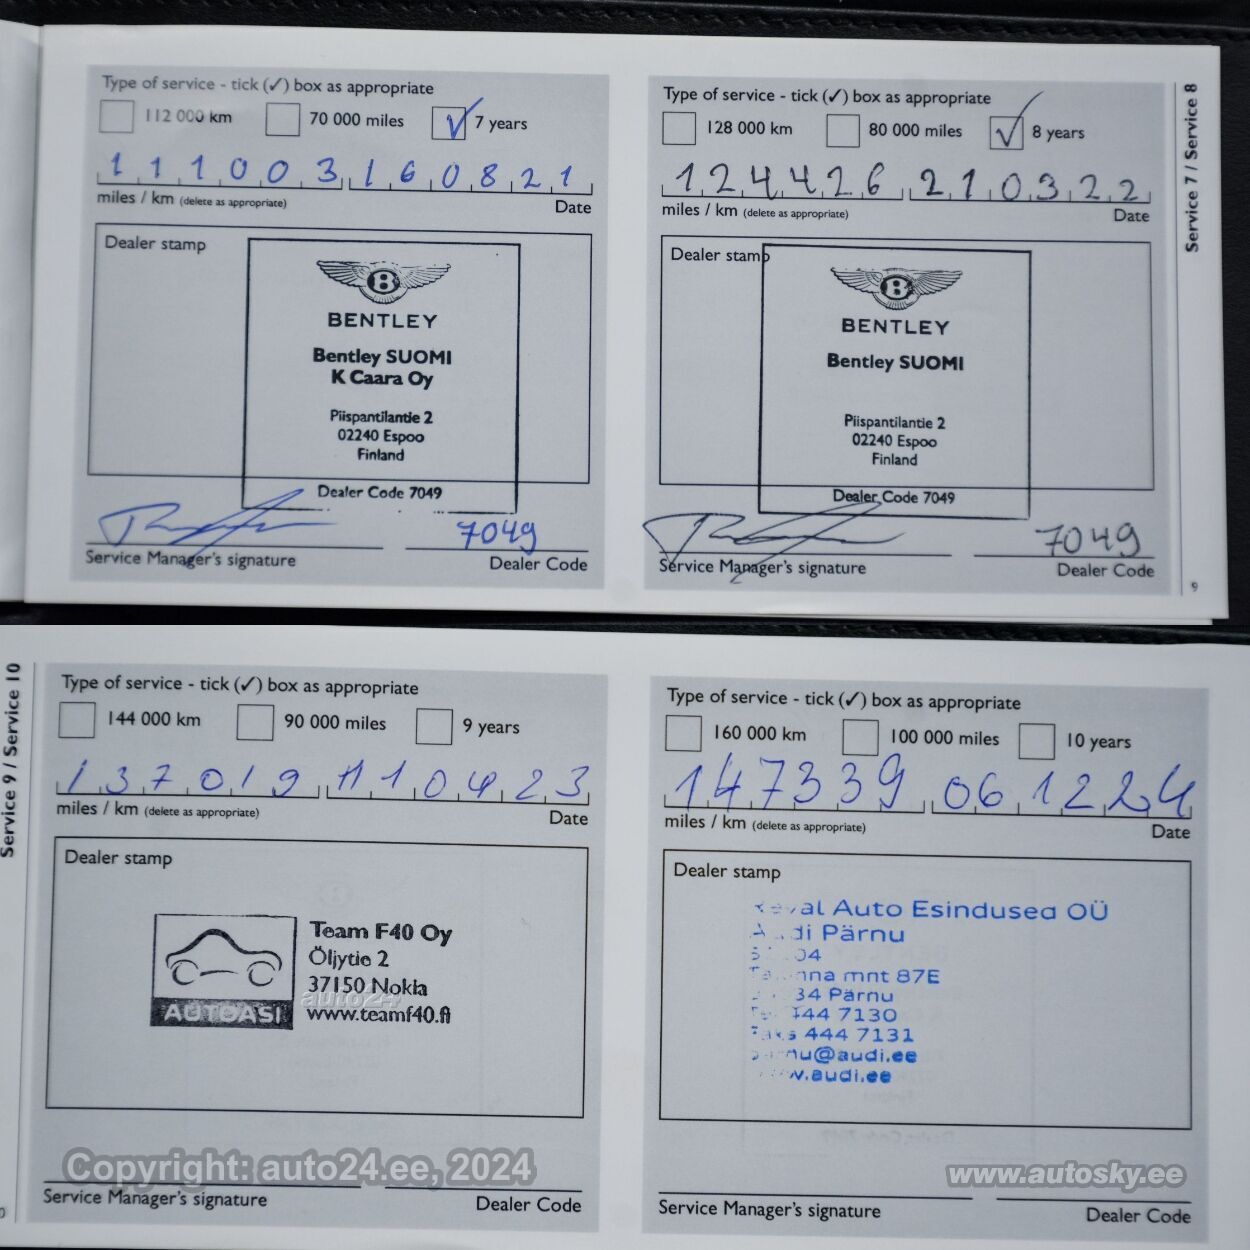 Type of service - tick (✓) box as appropriate
112 000 km 70 000 miles 7 years
111003 160821
miles / km (delete as appropriate) Date
Dealer stamp
B
BENTLEY
Bentley SUOMI
K Caara Oy
Piispantilantie 2
02240 Espoo
Finland
Dealer Code 7049
7049
Service Manager's signature Dealer Code
Type of service - tick (✓) box as appropriate
128 000 km 80 000 miles 8 years
124426 210322
miles / km (delete as appropriate) Date
Dealer stamp
B
BENTLEY
Bentley SUOMI
Piispantilantie 2
02240 Espoo
Finland
Dealer Code 7049
7049
Service Manager's signature Dealer Code
Service 7 / Service 8
9
Service 9 / Service 10
Type of service - tick (✓) box as appropriate
144 000 km 90 000 miles 9 years
137019 110423
miles / km (delete as appropriate) Date
Dealer stamp
AUTOASI
Team F40 Oy
Öljytie 2
37150 Nokia
www.teamf40.fi
auto24
Service Manager's signature Dealer Code
Type of service - tick (✓) box as appropriate
160 000 km 100 000 miles 10 years
147339 061224
miles / km (delete as appropriate) Date
Dealer stamp
Auto Esindused OÜ
Pärnu
mnt 87E
Pärnu
7130
444 7131
Service Manager's signature Dealer Code
Copyright: auto24.ee, 2024
www.autosky.ee